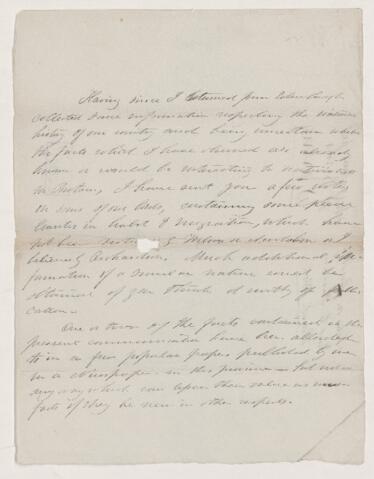 Having since I returned from Edinburgh
collected some information respecting the natural
history of our country and being uncertain whether
the facts which I have observed are already
known or would be interesting to naturalists
in Britain, I have sent you a few notes
on some of our birds, containing some pecu
liarities in habit & migration, which have
not been noticed by Wilson or Audubon or I
believe by Richardson. Much additional in
formation of a similar nature could be
obtained if you think it worthy of publi
cation.
One or two of the facts contained in the
present communication have been alluded
to in a few popular papers published by me
in a Newspaper in this province — but not in
any way which can upon their value as
facts if they be new in other respects.